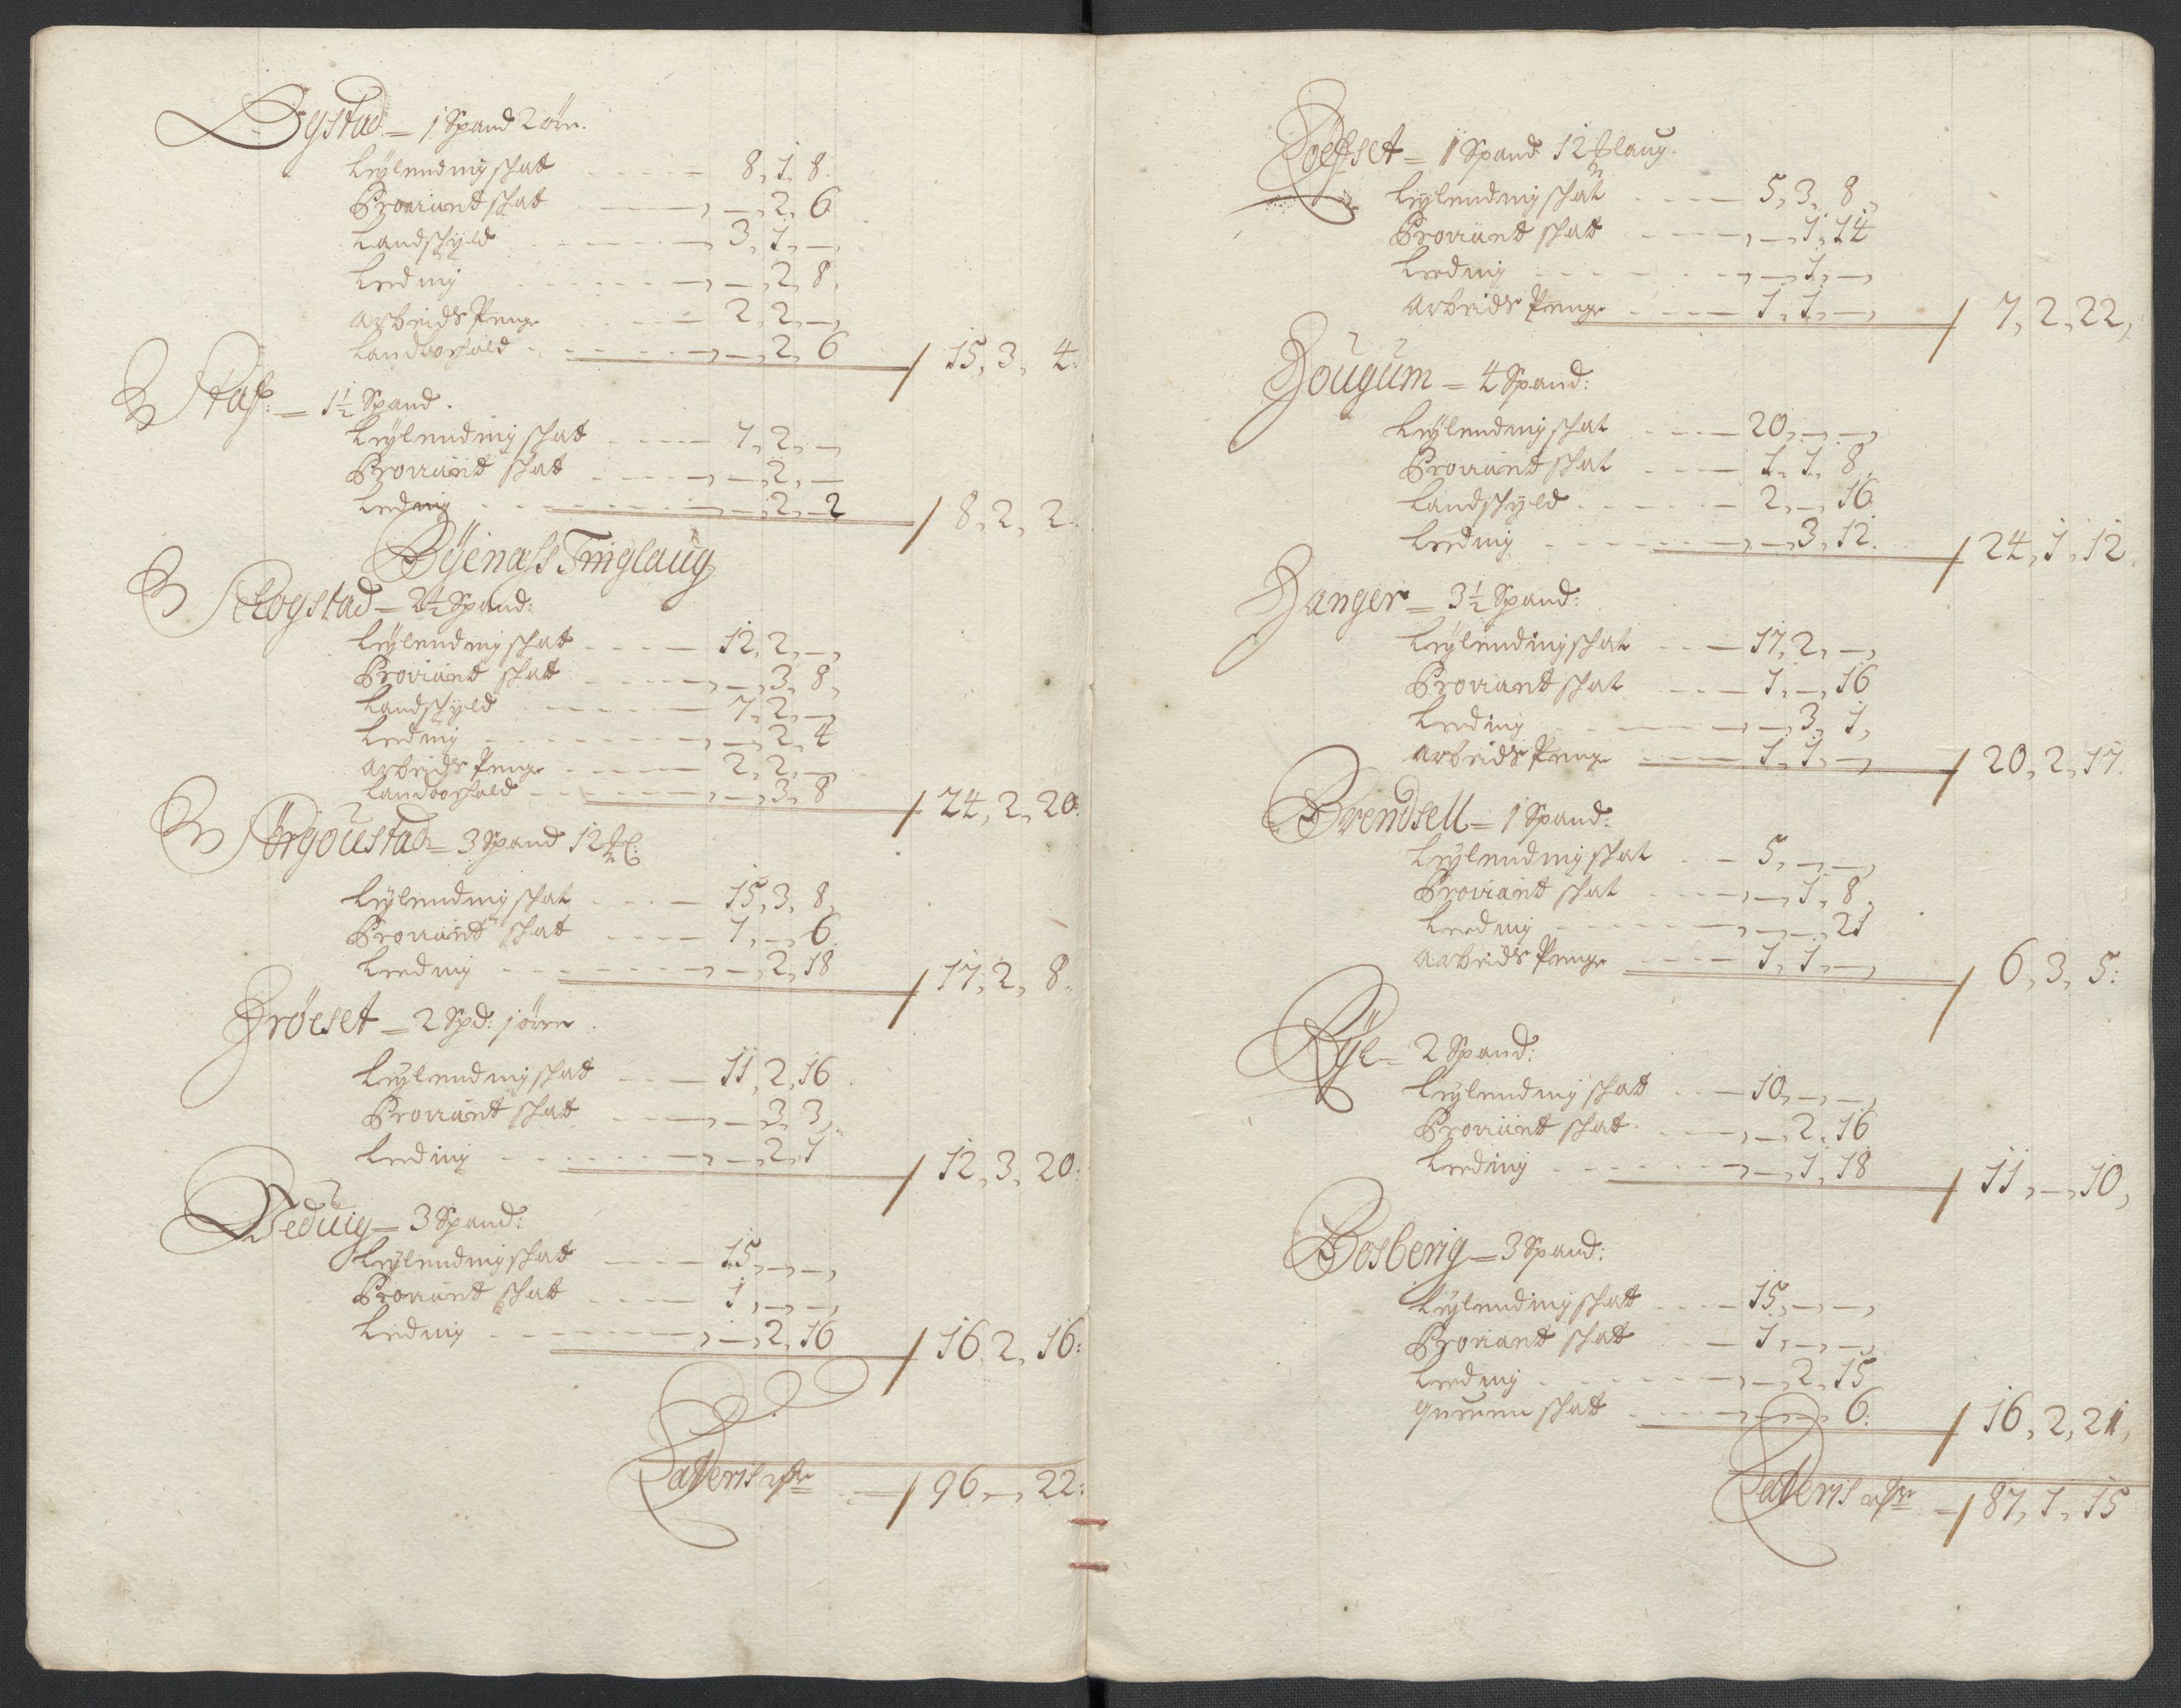 Bystad = 1 Spand 2 øre.
Leylending shatt - - - - 8, 1, 8.
Proviant shatt - - - -, —, 2, 6
Landshyld - - - - 3, 1, —,
Leeding - - - -, —, 2, 8,
Arbeids Penge - - - 2, 2, —,
Landvorhold - - - -, —, 2, 6 / 15, 3, 4:
Staf: = 1½ Spand.
Leylending shatt - - - - 7, 2, —,
Proviant shatt - - - -, —, 2, —
Leeding - - - -, —, 2, 2 / 8, 2, 2:
Byenass Tinglaug
Schogstad = 2½ Spand:
Leylending shatt - - - - 12, 2, —,
Proviant shatt - - - -, —, 3, 8,
Landshyld - - - - 7, 2, —,
Leeding - - - -, —, 2, 4
Arbeids Penge - - - - 2, 2, —,
Landvorhold - - - -, —, 3, 8 / 24, 2, 20:
Størgoustad = 3 Spand 12
Leylending shatt - - - - 15, 3, 8,
Proviant shatt - - - - 1, —, 6.
Leeding - - - -, —, 2, 18 / 17, 2, 8.
Frøeset = 2 Spd: 1 øre
Leylending shatt - - - 11, 2, 16.
Proviant shatt - - - -, —, 3, 3,
Leeding - - - -, —, 2, 1 / 12, 3, 20:
Beduig = 3 Spand:
Leylending shatt - - - - 15, —, —,
Proviant shatt - - - - 1, —, —,
Leeding - - - -, —, 2, 16 / 16, 2, 16:
Lateris - - / 96, —, 22:
1 Spand 12 laug.
Leylending shatt - - - - 5, 3, 8,
Proviant shatt - - - -, —, 1, 14
Leeding - - - -, —, 1, —,
Arbeids Penge - - - - 1, 1, —, / 7, 2, 22,
Hougum = 4 Spand:
Leylending shat - - - - 20, —, —,
Proviant shat - - - - 1, 1, 8,
Landshyld - - - - 2, —, 16
Leeding - - - -, —, 3, 12. / 24, 1, 12.
Hanger = 3½ Spand:
Leylending shat - - - 17, 2, —,
Proviant shat - - - 1, —, 16
Leeding - - - -, —, 3, 1,
Arbeids Penge - - - - 1, 1, —, / 20, 2, 17.
Brendsell = 1 Spand:
Leylending shat - - 5, —, —,
Proviant shat - - - -, —, 1, 8,
Leeding - - - -, —, —, 21
Arbeids Penge - - - - 1, 1, —, / 6, 3, 5:
Rye = 2 Spand:
Leylending shatt - - - 10, —, —,
Proviant shatt - - - -, —, 2, 16
Leeding - - - -, —, 1, 18 / 11, —, 10,
Bosberig = 3 Spand:
Leylending shatt - - - - 15, —, —,
Proviant shatt - - 1, —, —,
Leeding - - - -, —, 2, 15
Quernn shatt - - - -, —, —, 6: / 16, 2, 21,
Lateris - / 87, 1, 15